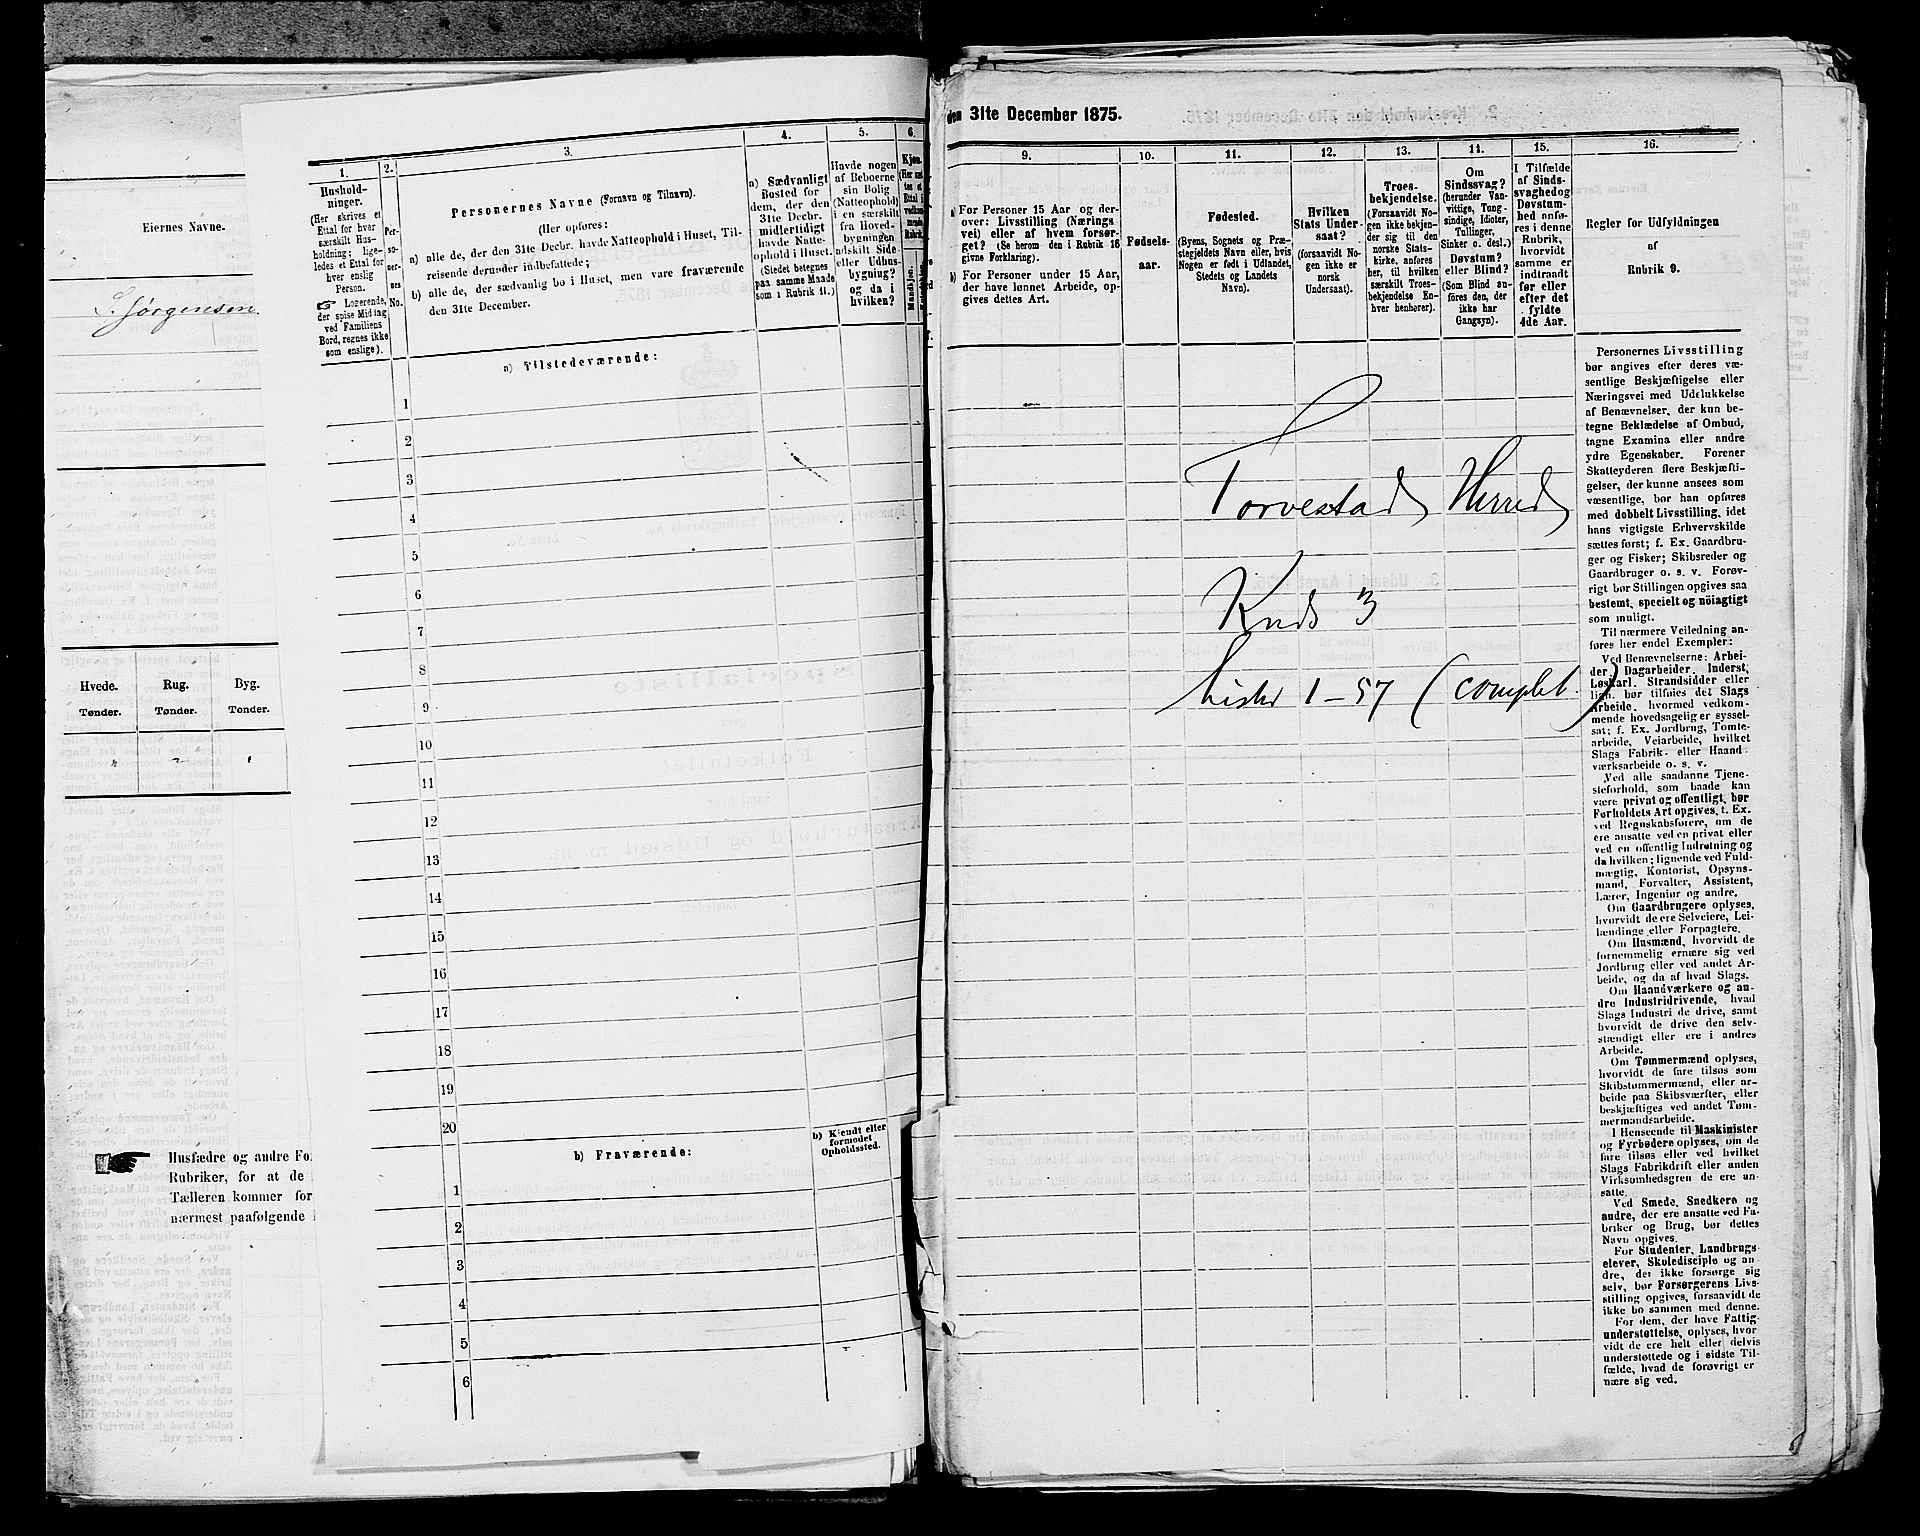 Eiernes Navne.
S. Jørgensen
Hvede. Rug. Byg.
Tønder. Tønder. Tønder.
" " "
Husfædre og andre For
Rubriker, for at de
Tælleren kommer for
nærmest paafølgende
1.
Hushold-
ninger.
(Her skrives et
Ettal for hver
særskilt Hus-
holdning; lige-
ledes et Ettal for
hver enslig
Person.
☞ Logerende,
der spise Middag
ved Familiens
Bord, regnes ikke
som enslige).
2.
Per-
so-
ner-
nes
No.
3.
Personernes Navne (Fornavn og Tilnavn).
(Her opføres:
a) alle de, der den 31te Decbr. havde Natteophold i Huset, Til-
reisende derunder indbefattede;
b) alle de, der sædvanlig bo i Huset, men vare fraværende
den 31te December.
4.
a) Sædvanligt
Bosted for
dem, der den
31te Decbr.
midlertidigt
havde Natte-
ophold i Huset.
(Stedet betegnes
paa samme Maade
som i Rubrik 11.)
5.
Havde nogen
af Beboerne
sin Bolig
(Natteophold)
i en særskilt
fra Hoved-
bygningen
adskilt Side-
eller Udhus-
bygning?
og da i
hvilken?
6.
Kjøn.
(Her sæt-
tes et
Ettal i
vedkom-
mende
Rubrik.
Mandkjøn.
a) Tilstedeværende:
1
2
3
4
5
6
7
8
9
10
11
12
13
14
15
16
17
18
19
20
b) Fraværende:
b) Kjendt eller
formodet
Opholdssted.
1
2
3
4
5
6
den 31te December 1875.
9.
a) For Personer 15 Aar og der-
over: Livsstilling (Nærings
vei) eller af hvem forsør-
get? (Se herom den i Rubrik 16
givne Forklaring).
b) For Personer under 15 Aar,
der have lønnet Arbeide, op-
gives dettes Art.
10.
Fødsels-
aar.
11.
Fødested.
(Byens, Sognets og Præ-
stegjeldets Navn eller, hvis
Nogen er født i Udlandet,
Stedets og Landets
Navn).
12.
Hvilken
Stats Under-
saat?
(forsaavidt No-
gen ikke er
norsk
Undersaat).
13.
Troes-
bekjendelse.
(Forsaavidt No-
gen ikke bekjen-
der sig til den
norske Stats-
kirke, anføres
her, til hvilken
særskilt Troes-
bekjendelse En-
hver henhører).
14.
Om
Sindssvag?
(herunder Van-
vittige, Tung-
sindige, Idioter,
Tullinger,
Sinker o. desl.)
Døvstum?
eller Blind?
(Som Blind an-
føres den, der
ikke har
Gangsyn).
15.
I Tilfælde
af Sinds-
svaghed og
Døvstum-
hed anfø-
res i denne
Rubrik,
hvorvidt
samme er
indtraadt
før eller
efter det
fyldte
4de Aar.
16.
Regler for Udfyldningen
af
Rubrik 9.
Torvestad Herred
Kreds 3
Lister 1–57 (complet.)
Personernes Livsstilling
bør angives efter deres væ-
sentlige Beskjæftigelse eller
Næringsvei med Udelukkelse
af Benævnelser, der kun be-
tegne Beklædelse af Ombud,
tagne Examina eller andre
ydre Egenskaber. Forener
Skatteyderen flere Beskjæfti-
gelser, der kunne ansees som
væsentlige, bør han opføres
med dobbelt Livsstilling, idet
hans vigtigste Erhvervskilde
sættes først; f. Ex. Gaardbru-
ger og Fisker; Skibsreder og
Gaardbruger o. s. v. Forøv-
rigt bør Stillingen opgives saa
bestemt, specielt og nøiagtigt
som muligt.
Til nærmere Veiledning an-
føres her endel Exempler:
Ved Benævnelserne: Arbei-
der, Dagarbeider, Inderst,
Løskarl, Strandsidder eller
lign. bør tilføies det Slags
Arbeide, hvormed vedkom-
mende hovedsagelig er syssel-
sat; f. Ex. Jordbrug, Tomte-
arbeide, Veiarbeide, hvilket
Slags Fabrik- eller Haand-
værksarbeide o. s. v.
Ved alle saadanne Tjene-
steforhold, som baade kan
være privat og offentligt, bør
Forholdets Art opgives, t. Ex.
ved Regnskabsførere, om de
ere ansatte ved en privat eller
ved en offentlig Indretning og
da hvilken; lignende ved Fuld-
mægtig, Kontorist, Opsyns-
mand, Forvalter, Assistent,
Lærer, Ingeniør og andre.
Om Gaardbrugere oplyses,
hvorvidt de ere Selveiere, Lei-
lændinge eller Forpagtere.
Om Husmænd, hvorvidt de
fornemmelig ernære sig ved
Jordbrug eller ved andet Ar-
beide, og da af hvad Slags.
Om Haandværkere og an-
dre Industridrivende, hvad
Slags Industri de drive, samt
hvorvidt de drive den selv-
stændigt eller ere i andres
Arbeide.
Om Tømmermænd oplyses,
hvorvidt de fare tilsøs som
Skibstømmermænd, eller ar-
beide paa Skibsværfter, eller
beskjæftiges ved andet Tøm-
mermandsarbeide.
I Henseende til Maskinister
og Fyrbødere oplyses, om de
fare tilsøs eller ved hvilket
Slags Fabrikdrift eller anden
Virksomhedsgren de ere an-
satte.
Ved Smede, Snedkere og
andre, der ere ansatte ved Fa-
briker og Brug, bør dettes
Navn opgives.
For Studenter, Landbrugs-
elever, Skoledisciple og an-
dre, der ikke forsørge sig
selv, bør Forsørgerens Livs-
stilling opgives, forsaavidt de
ikke bo sammen med denne.
For dem, der have Fattig-
understøttelse, oplyses, hvor
vidt de ere helt eller delvis
understøttede og i sidste Til-
fælde, hvad de forøvrigt er
nære sig ved.